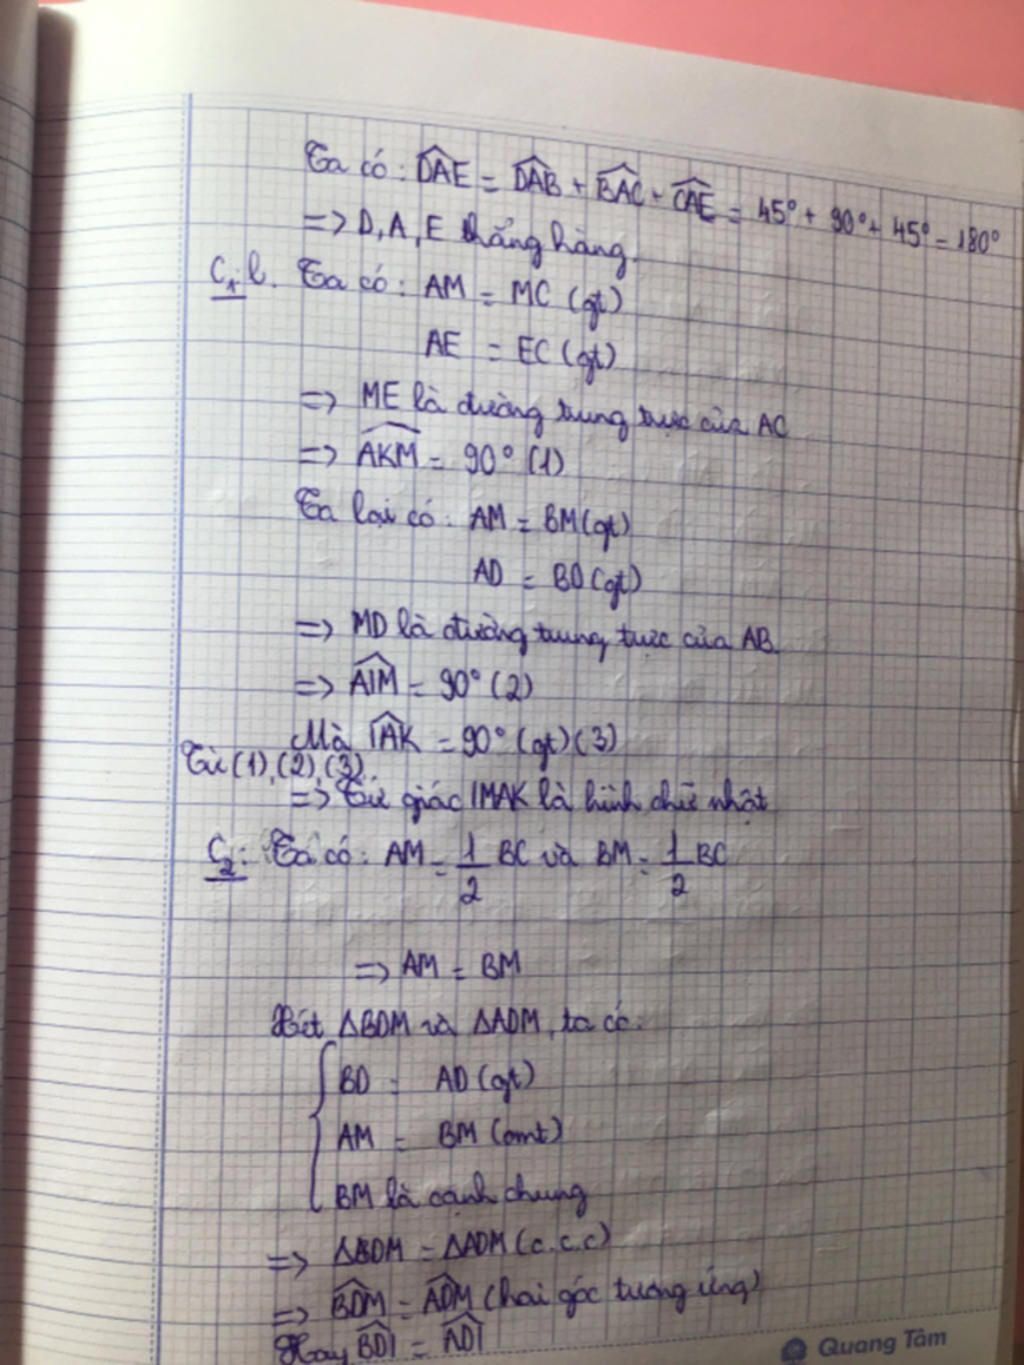 Ta có: DAE = DAB + BAC + CAE = 45° + 90° + 45° = 180°
=> D, A, E thẳng hàng.
C1: b. Ta có: AM = MC (gt)
AE = EC (gt)
=> ME là đường trung trực của AC
=> AKM = 90° (1)
Ta lại có: AM = BM (gt)
AD = BD (gt)
=> MD là đường trung trực của AB
=> AIM = 90° (2)
Mà IAK = 90° (gt) (3)
Từ (1), (2), (3)
=> Tứ giác IMAK là hình chữ nhật
C2: Ta có: AM = 1/2 BC và BM = 1/2 BC
=> AM = BM
Xét ΔBDM và ΔADM, ta có:
BD = AD (gt)
AM = BM (cmt)
BM là cạnh chung
=> ΔBDM = ΔADM (c.c.c)
=> BDM = ADM (hai góc tương ứng)
Hay BDI = ADI
Quang Tâm